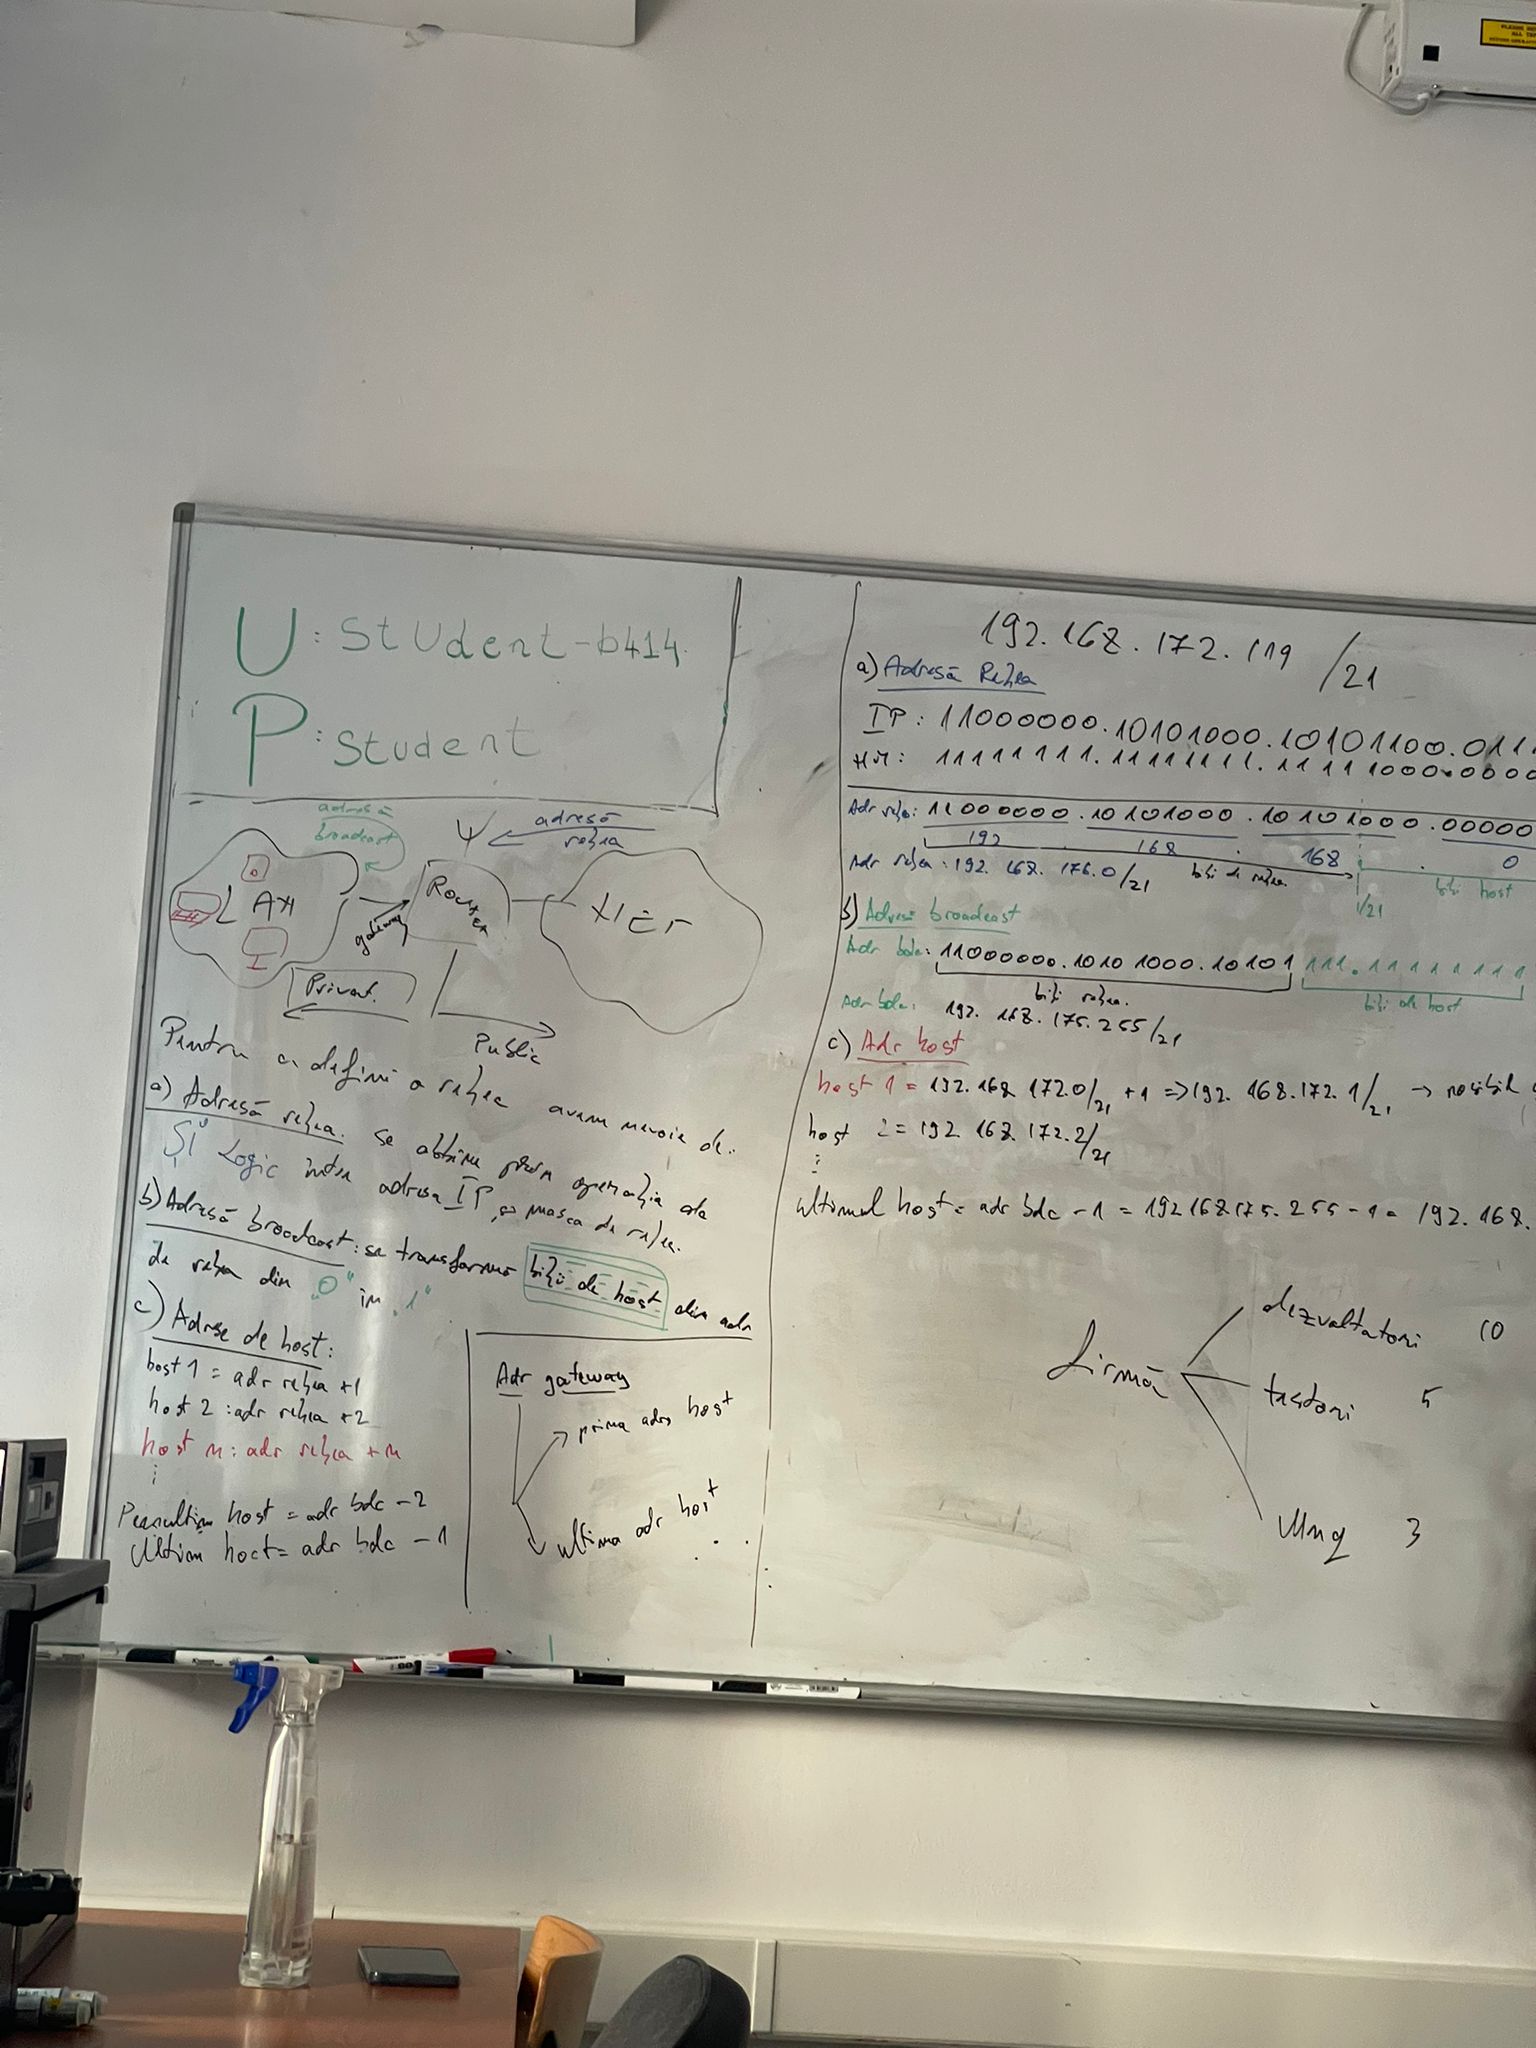 U: StUdent-b414
P: Student
adresă
broadcast
adresă
rețea
LAN
gateway
Router
NET
Privat.
Public
Pentru a defini o rețea avem nevoie de:
a) Adresă rețea: se obține prin operația de
"ȘI" Logic între adresa IP și masca de rețea.
b) Adresă broadcast: se transformă biții de host din adr
de rețea din "0" în "1"
c) Adrese de host:
host 1 = adr rețea +1
host 2 : adr rețea +2
host n: adr rețea + n
⋮
Penultim host = adr bdc -2
Ultim host = adr bdc -1
Adr gateway
prima adr host
ultima adr host
192.168.172.119 /21
a) Adresă Rețea
IP: 11000000.10101000.10101100.0111
NM: 11111111.11111111.11111000.0000
Adr rețea: 11000000.10101000.10101000.00000
192 . 168 . 168 . 0
Adr rețea: 192.168.176.0/21
biți de rețea
/21
biți host
b) Adresă broadcast
Adr bdc: 11000000.10101000.10101111.11111111
biți rețea.
biți de host
Adr bdc: 192.168.175.255/21
c) Adr host
host 1 = 192.168.172.0/21 + 1 => 192.168.172.1/21 →
host 2 = 192.168.172.2/21
⋮
ultimul host = adr bdc - 1 = 192.168.175.255 - 1 = 192.168.
firmă
dezvoltatori 10
testori 5
Mng 3